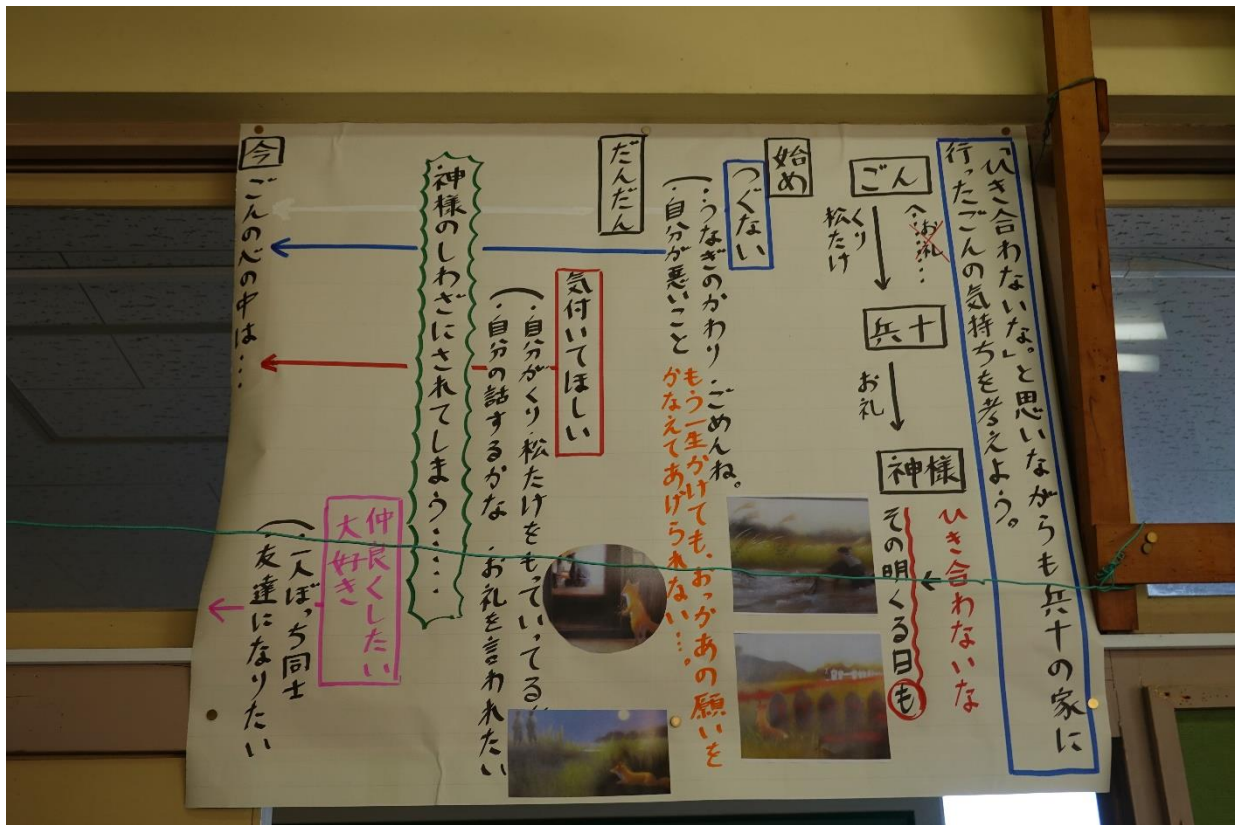 「ひき合わないな。」と思いながらも兵十の家に
行ったごんの気持ちを考えよう。
ごん
へ…お礼…
くり
松たけ
兵十
お礼
神様
ひき合わないな
その明くる日も
始め
つぐない
・うなぎのかわり ごめんね。
・自分が悪いこと
もう一生かけても、おっかあの願いを
かなえてあげられない…。
だんだん
気付いてほしい
・自分がくり・松たけをもっていってる
・自分の話するかな ・お礼を言われたい
・神様のしわざにされてしまう……
仲良くしたい
大好き
・一人ぼっち同士
・友達になりたい
今
ごんの心の中は…